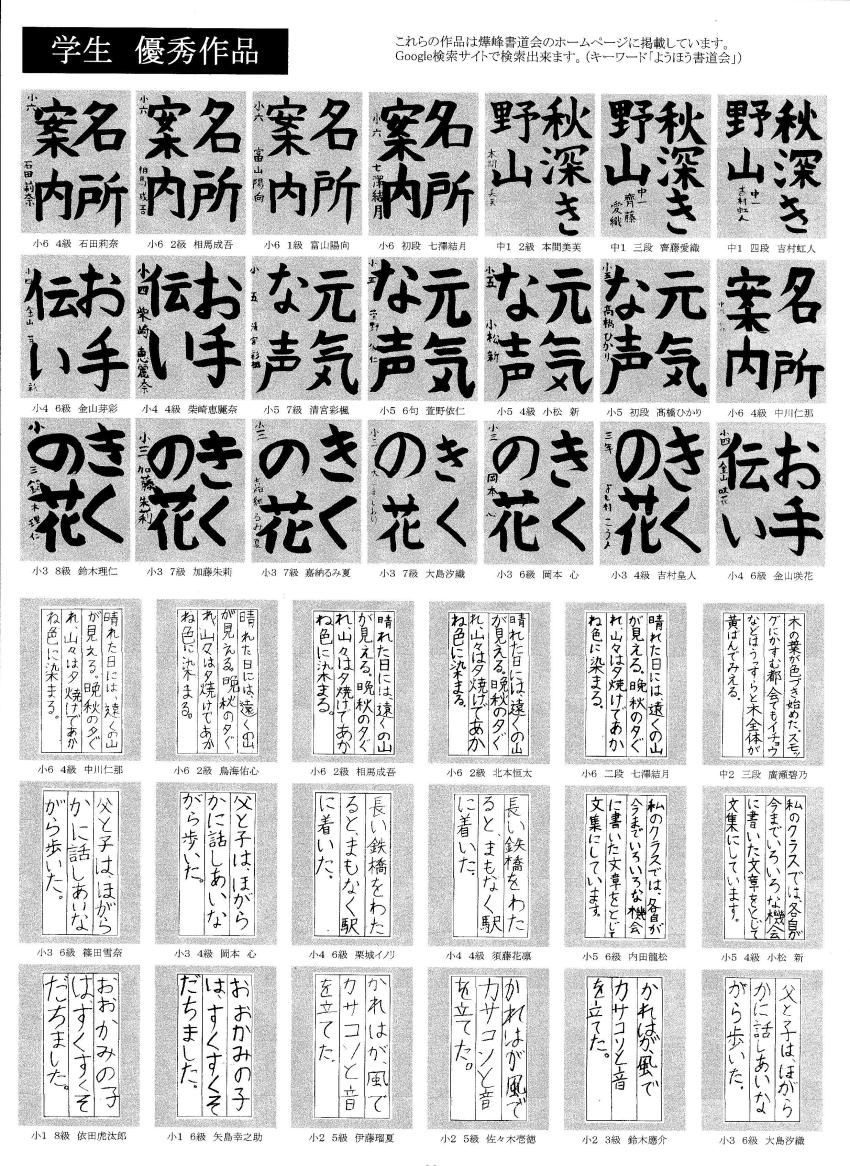 学生 優秀作品
これらの作品は燁峰書道会のホームページに掲載しています。
Google検索サイトで検索出来ます。(キーワード「ようほう書道会」)
名所
案内
小六
石田莉奈
名所
案内
小六
相馬成吾
名所
案内
小六
富山陽向
名所
案内
小六
七澤結月
秋深き
野山
本間
秋深き
野山
中一
齊藤愛織
秋深き
野山
中一
吉村虹人
小6 4級 石田莉奈
小6 2級 相馬成吾
小6 1級 富山陽向
小6 初段 七澤結月
中1 2級 本間美芙
中1 三段 齊藤愛織
中1 四段 吉村虹人
お手
伝い
小四
金山
お手
伝い
小四
柴崎恵麗奈
元気
な声
小五
清宮彩楓
元気
な声
小五
元気
な声
小五
小松新
元気
な声
小五
高橋ひかり
名所
案内
小4 6級 金山芽彩
小4 4級 柴崎恵麗奈
小5 7級 清宮彩楓
小5 6句 萱野依仁
小5 4級 小松 新
小5 初段 髙橋ひかり
小6 4級 中川仁那
きく
の花
小三
鈴木理仁
きく
の花
小三
加藤朱莉
きく
の花
小三
嘉納るみ夏
きく
の花
小三
きく
の花
小三
岡本心
きく
の花
三年
よし村こう人
お手
伝い
小四
金山咲花
小3 8級 鈴木理仁
小3 7級 加藤朱莉
小3 7級 嘉納るみ夏
小3 7級 大島汐織
小3 6級 岡本 心
小3 4級 吉村皇人
小4 6級 金山咲花
晴れた日には、遠くの山
が見える。晩秋の夕ぐ
れ、山々は夕焼けであか
ね色に染まる。
晴れた日には、遠くの山
が見える。晩秋の夕ぐ
れ、山々は夕焼けであか
ね色に染まる。
晴れた日には、遠くの山
が見える。晩秋の夕ぐ
れ、山々は夕焼けであか
ね色に染まる。
晴れた日には、遠くの山
が見える。晩秋の夕ぐ
れ、山々は夕焼けであか
ね色に染まる。
晴れた日には、遠くの山
が見える。晩秋の夕ぐ
れ、山々は夕焼けであか
ね色に染まる。
木の葉が色づき始めた。スモッ
グにかすむ都会でもイチョウ
などはうっすらと木全体が
黄ばんでみえる。
小6 4級 中川仁那
小6 2級 鳥海佑心
小6 2級 相馬成吾
小6 2級 北本恒太
小6 二段 七澤結月
中2 三段 廣瀬碧乃
父と子は、ほがら
かに話しあいな
がら歩いた。
父と子は、ほがら
かに話しあいな
がら歩いた。
長い鉄橋をわた
ると、まもなく駅
に着いた。
長い鉄橋をわた
ると、まもなく駅
に着いた。
私のクラスでは、各自が
今までいろいろな機会
に書いた文章をとじて
文集にしています。
私のクラスでは、各自が
今までいろいろな機会
に書いた文章をとじて
文集にしています。
小3 6級 篠田雪奈
小3 4級 岡本 心
小4 6級 栗城イノリ
小4 4級 須藤花凛
小5 6級 内田龍松
小5 4級 小松 新
おおかみの子
は、すくすくそ
だちました。
おおかみの子
は、すくすくそ
だちました。
かれはが、風で
カサコソと音
を立てた。
かれはが風で
カサコソと音
を立てた。
かれはが、風で
カサコソと音
を立てた。
父と子は、ほがら
かに話しあいな
がら歩いた。
小1 8級 依田虎汰郎
小1 6級 矢島幸之助
小2 5級 伊藤瑠夏
小2 5級 佐々木壱徳
小2 3級 鈴木應介
小3 6級 大島汐織